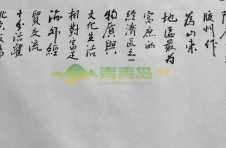 膠州作
為山東
地區最為
富庶的
經濟區之一
物質與
文化生活
相對富足
海外經
貿交流
十分活躍
青青岛